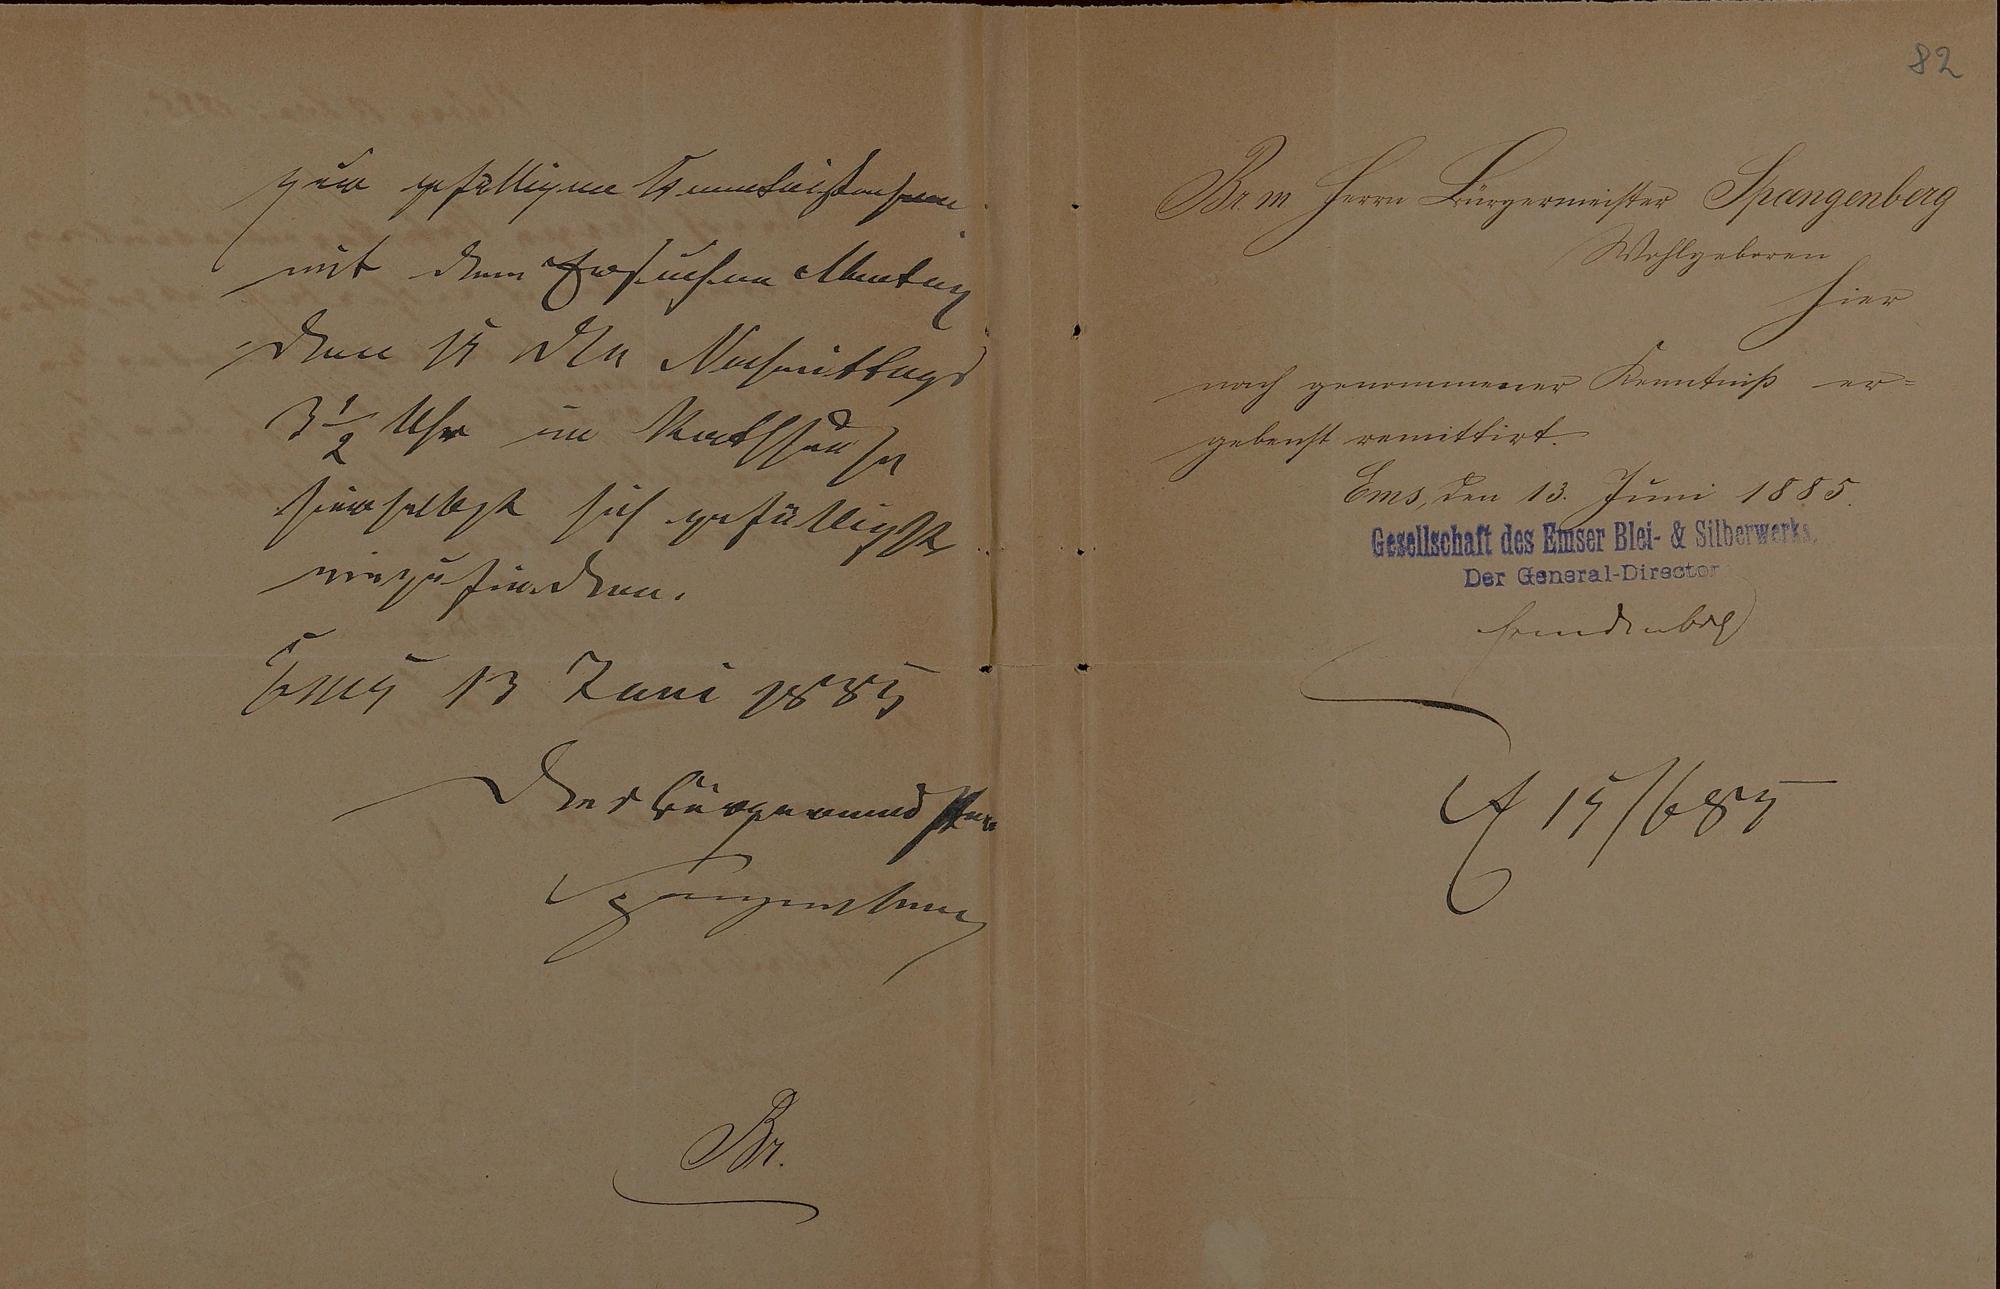 zur gefälligen Kenntnißnahme
mit dem Ersuchen Montag
den 15 dss Nachmittags
3 1/2 Uhr im Rathhause
hierselbst sich gefälligst
einzufinden.
Ems 13 Juni 1885
Der Bürgermeister
Spangenberg
Br.
82
Br. m. Herrn Bürgermeister Spangenberg
Wohlgeboren
hier
nach genommener Kenntniß er=
gebenst remittirt.
Ems, den 13. Juni 1885.
Gesellschaft des Emser Blei- & Silberwerks.
Der General-Director
15/6 85